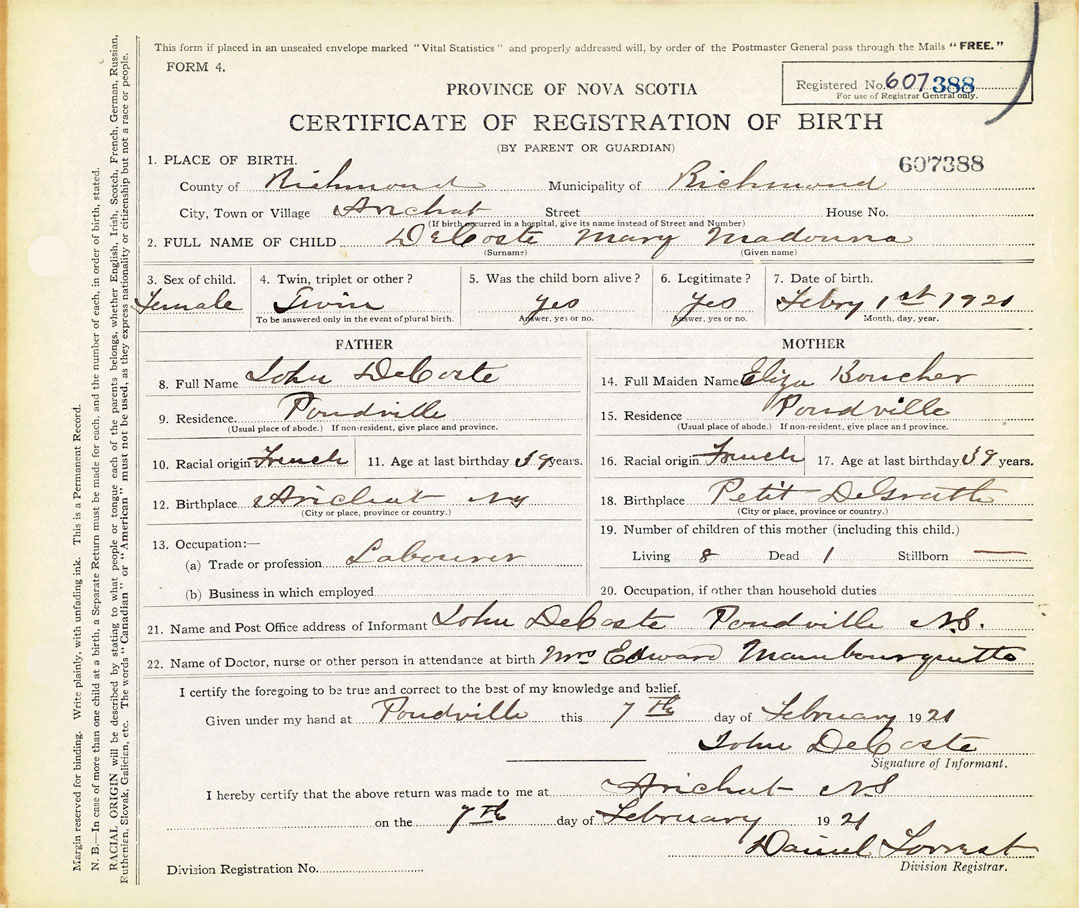 This form if placed in an unsealed envelope marked "Vital Statistics" and properly addressed will, by order of the Postmaster General pass through the Mails "FREE."
FORM 4.
Registered No. 607 388
For use of Registrar General only.
PROVINCE OF NOVA SCOTIA
CERTIFICATE OF REGISTRATION OF BIRTH
(BY PARENT OR GUARDIAN)
607388
1. PLACE OF BIRTH.
County of Richmond Municipality of Richmond
City, Town or Village Arichat Street House No.
(If birth occurred in a hospital, give its name instead of Street and Number)
2. FULL NAME OF CHILD DeCoste Mary Madonna
(Surname) (Given name)
3. Sex of child. 4. Twin, triplet or other? 5. Was the child born alive? 6. Legitimate? 7. Date of birth.
Female Twin yes yes Febry 1st 1921
To be answered only in the event of plural birth. Answer, yes or no. Answer, yes or no. Month, day, year.
FATHER
8. Full Name John DeCoste
9. Residence Poudville
(Usual place of abode.) If non-resident, give place and province.
10. Racial origin French 11. Age at last birthday 39 years.
12. Birthplace Arichat NS
(City or place, province or country.)
13. Occupation:—
(a) Trade or profession Labourer
(b) Business in which employed
MOTHER
14. Full Maiden Name Eliza Boucher
15. Residence Poudville
(Usual place of abode.) If non-resident, give place and province.
16. Racial origin French 17. Age at last birthday 39 years.
18. Birthplace Petit DeGrath
(City or place, province or country.)
19. Number of children of this mother (including this child.)
Living 8 Dead 1 Stillborn —
20. Occupation, if other than household duties
21. Name and Post Office address of Informant John DeCoste Poudville N.S.
22. Name of Doctor, nurse or other person in attendance at birth Mrs Edward
I certify the foregoing to be true and correct to the best of my knowledge and belief.
Given under my hand at Poudville this 7th day of February 1921
John DeCoste
Signature of Informant.
I hereby certify that the above return was made to me at Arichat NS
on the 7th day of February 1921
Daniel
Division Registrar.
Division Registration No.
Margin reserved for binding. Write plainly, with unfading ink. This is a Permanent Record.
N. B.—In case of more than one child at a birth, a Separate Return must be made for each, and the number of each, in order of birth, stated.
RACIAL ORIGIN will be described by stating to what people or tongue each of the parents belongs, whether English, Irish, Scotch, French, German, Russian,
Ruthenian, Slovak, Galician, etc. The words "Canadian" or "American" must not be used, as they express nationality or citizenship but not a race or people.